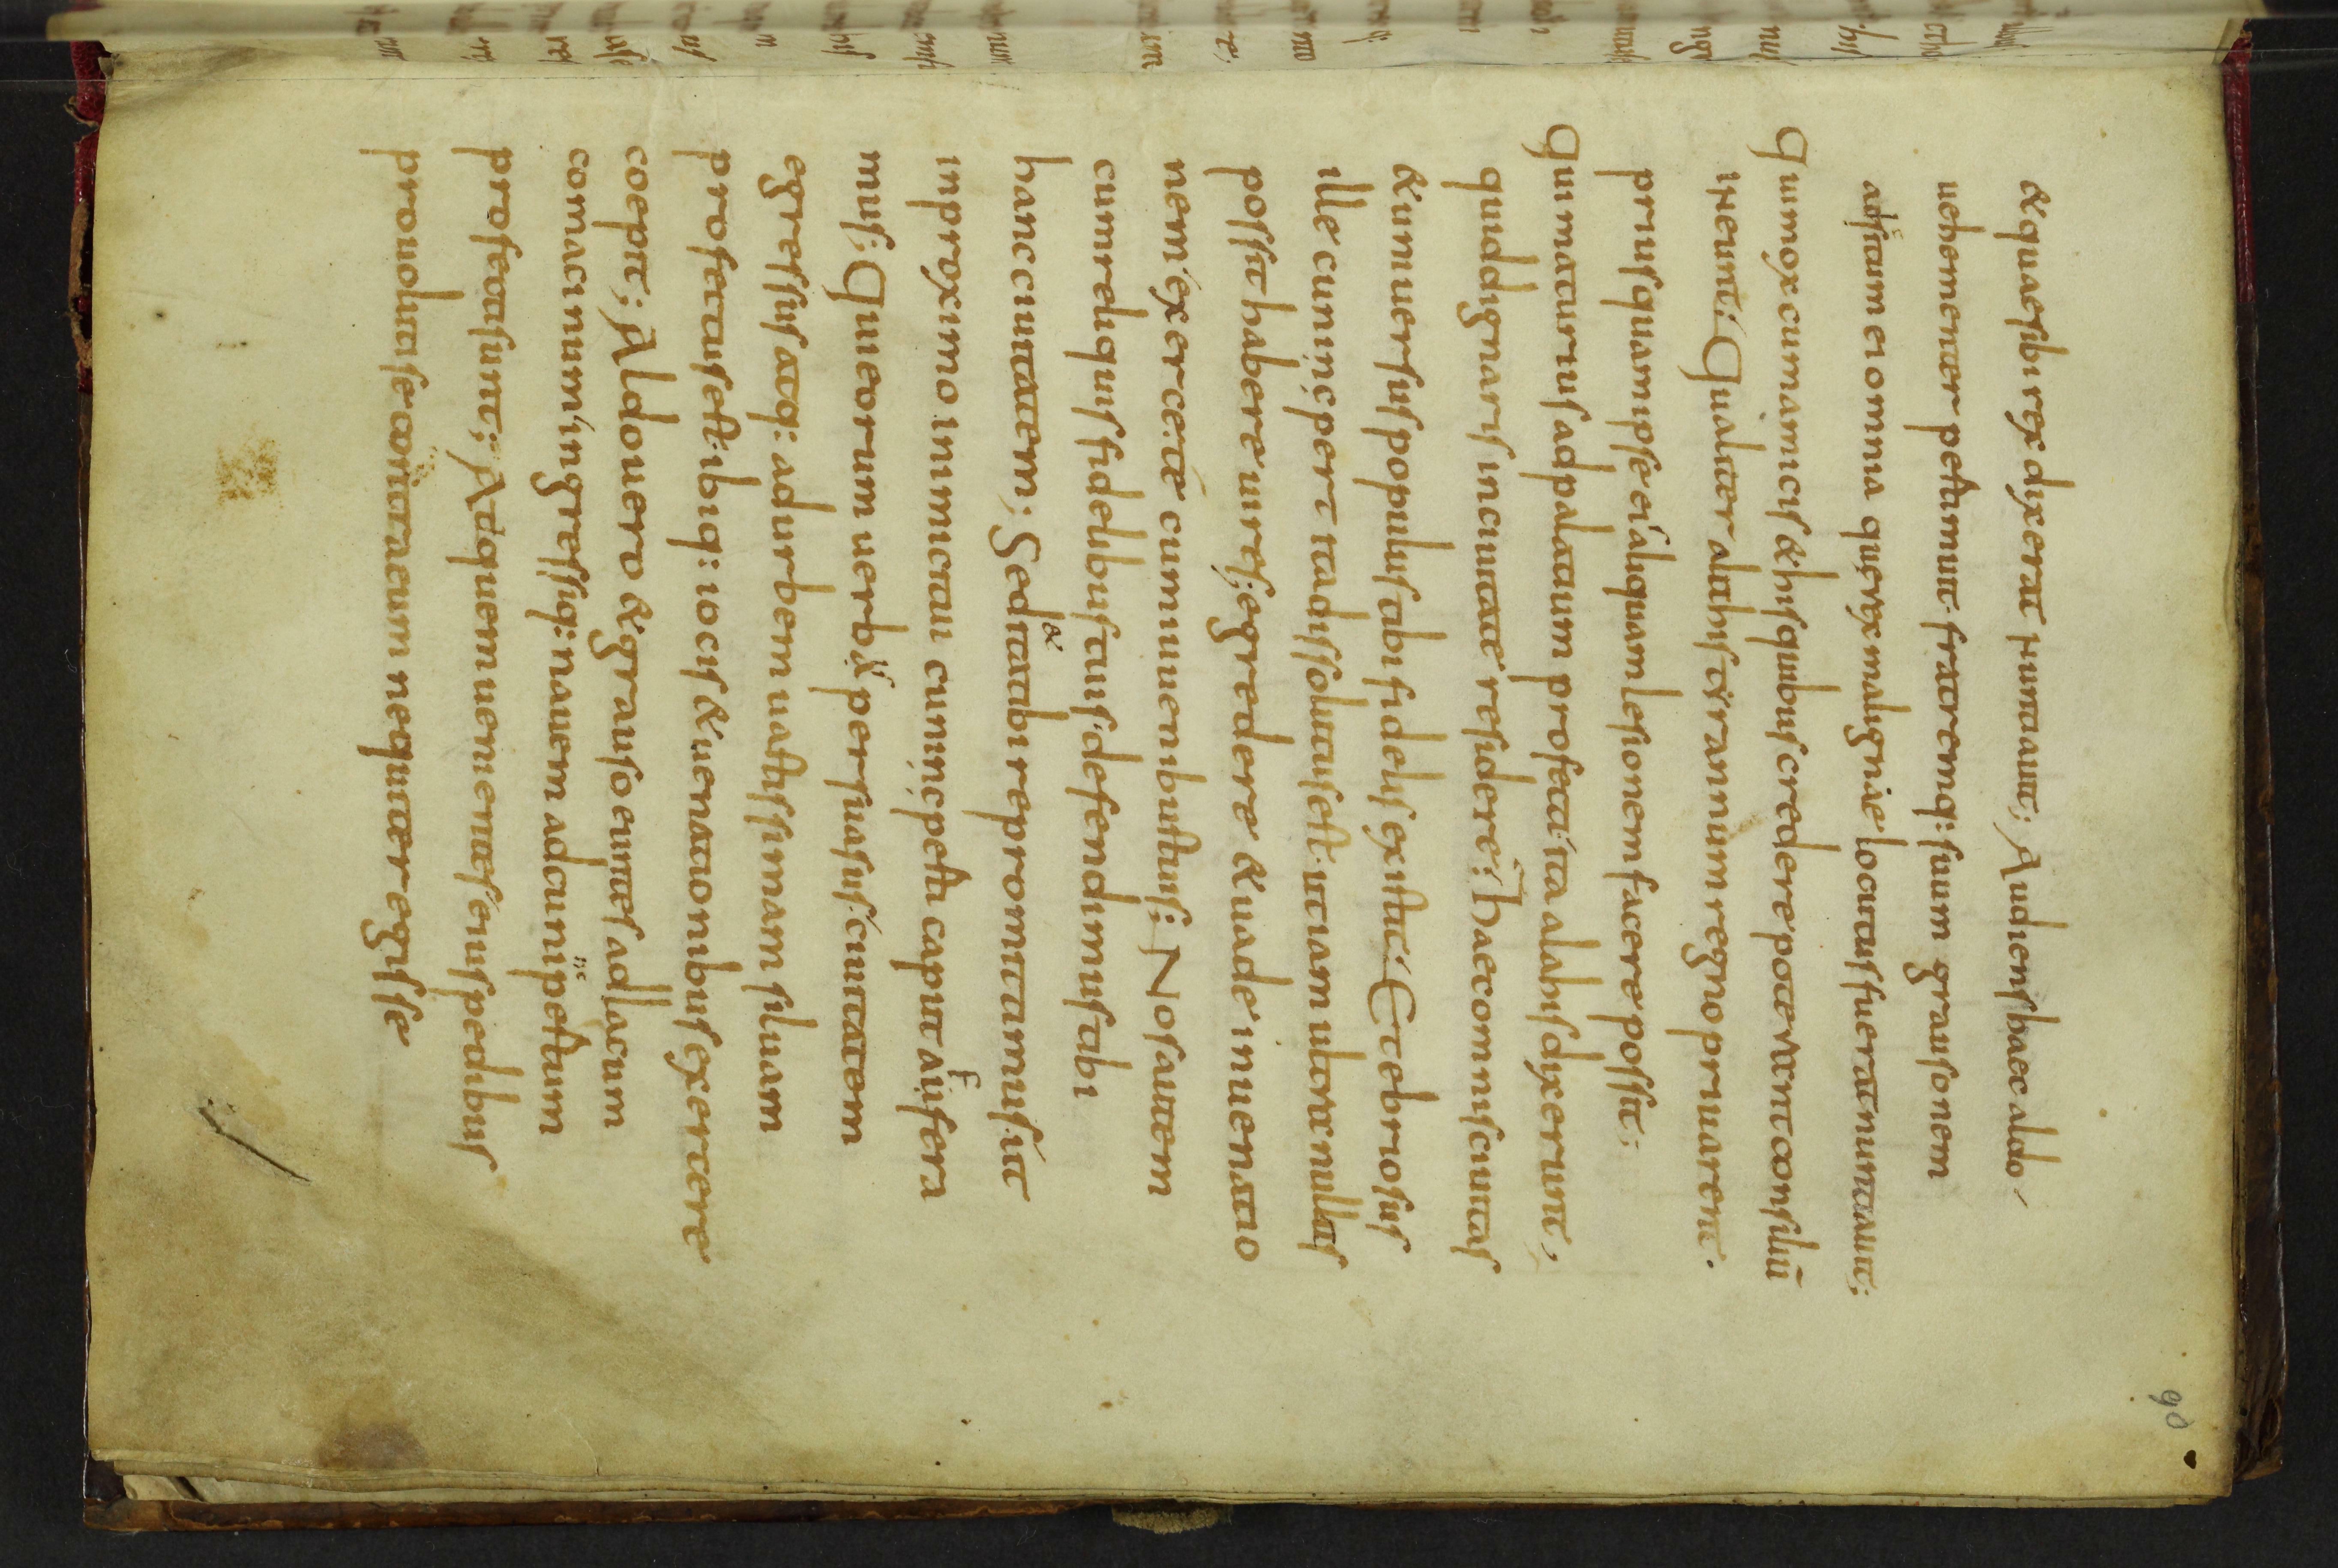 90
& quae sibi rex dixerat nuntiauit; Audiens haec aldo
uehementer pertimuit fratremq: suum grausonem
adscitum ei omnia quę rex maligne locutus fuerat nuntiauit;
Qui mox cum amicis & his quibus credere poterant consiliū
inierunt; Qualiter alahis tyrannum regno priuarent.
priusquam ipse ei aliquam lesionem facere possit;
Qui maturius ad palatium profecti ita alahis dixerunt;
quid dignaris in ciuitate residere; haec omnis ciuitas
& uniuersus populus tibi fidelis existit; Et ebriosus
ille cunincpert ita dissolutus est ut iam ultra nullas
possit habere uires; egredere & uade in uenatio
nem exercere cum iuuenibus tuis; Nos autem
cum reliquis fidelibus tuis defendimus tibi
hanc ciuitatem; Sed & ita tibi repromittimus ut
in proximo inimici tui cunincperti caput aufera
mus; Qui eorum uerbis persuasus ciuitatem
egressus atq: ad urbem uastissimam siluam
profectus est ibiq: iocis & uenationibus exercere
coepit; Aldo uero & grauso euntes ad lacum
comacinum ingressiq: nauem ad cunincpertum
profecti sunt; Ad quem uenientes eius pedibus
prouoluti se contra eum nequiter egisse